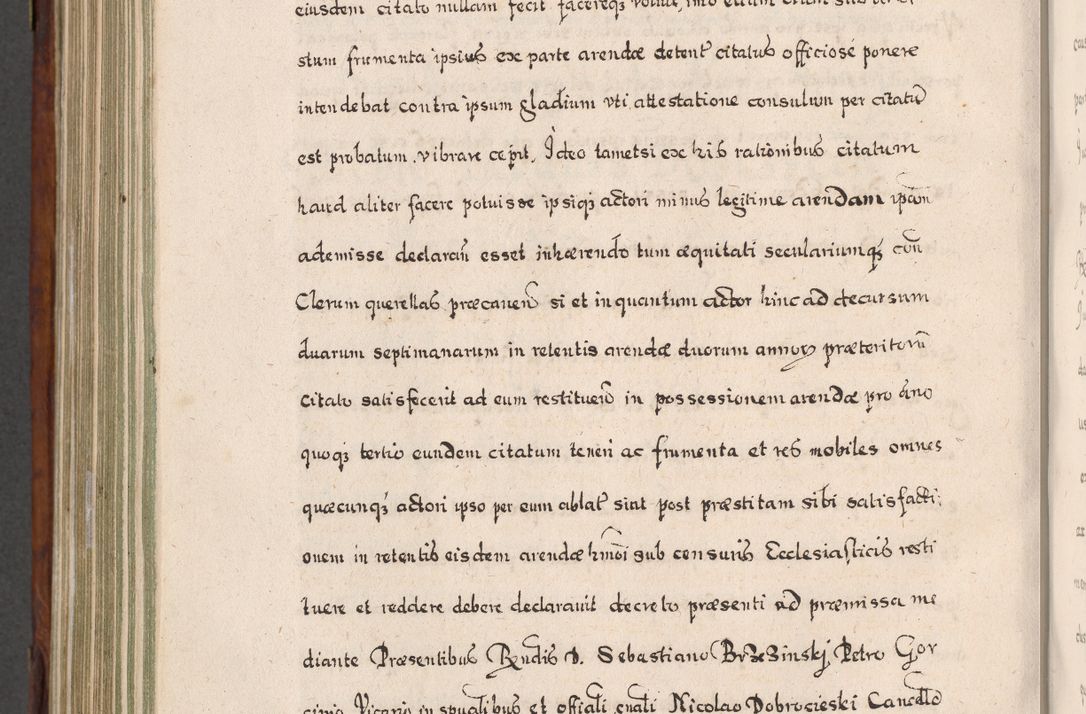 eiusdem citato nullam fecit facereq3 voluit, imo etiam
stum frumenta ipsius ex parte arendæ detent citatus officiosé ponere
intendebat contra ipsum gladium vti attestatione consulum per citatū
est probatum. vibrare cepit, Ideo tametsi ex his rationibus citatum
haud aliter facere potuisse ipsiq3 actori minus legitime arendam ipām
ademisse declarañ esset inhærendo tum æquitati seculariumq3 coñ
Clerum querellas præcaueñ si et in quantum actor hinc ad decursum
duarum septimanarum in retentis arendæ duorum annoꝝ præteritorū
citato satisfecerit ad eum restitueñ in possessionem arendæ pro āno
quoq3 tertio eundem citatum teneri ac frumenta et res mobiles omnes
quæcunq3 actori ipso per eum ablat sint post præstitam sibi satisfacti:
onem in retentis eisdem arendæ hmōi sub censuris Ecclesiasticis resti
tuere et reddere debere declarauit decreto præsenti ad præmissa me
diante Præsentibus Rndis D. Sebastiano Brzezinskj, Petro Gor
cinio Vicario in spualibus et offiali gnali Nicolao Dobrocieski Cancello